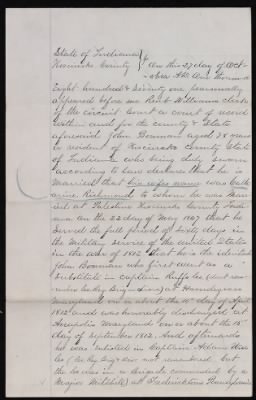 State of Indiana
Kosciusko County } On this 27 day of Oct-
ober A.D. One thousand
Eight hundred & Seventy one personally
appeared before me Reub Williams clerk
of the circuit Court a court of record
within and for the county & State
aforesaid John Bowman aged 78 years
a resident of Kosciusko County State
of Indiana who being duly sworn
according to law declares that he
married that his wifes name was Cath
arine Richmond to whom he was Marri
ed at Palestine Kosciusko County Indi
ana on the 22 day of May 1867 that he
served the full period of Sixty days in
the Military service of the United States
in the war of 1812 that he is the identical
John Bowman who first went as a
Substitute in Captain Co (does not
remember his Reg Brig or Div) at
Maryland on or about the 15th day of April
1812 and was honorably discharged at
Anapolis Maryland on or about the 15th
day of September 1812. And afterwards
he was enlisted in Captain Adam
Co (his Reg Brig & Div not remembered but
he was in a Brigade commanded by a
Major Mitchell) at Pennsylvania